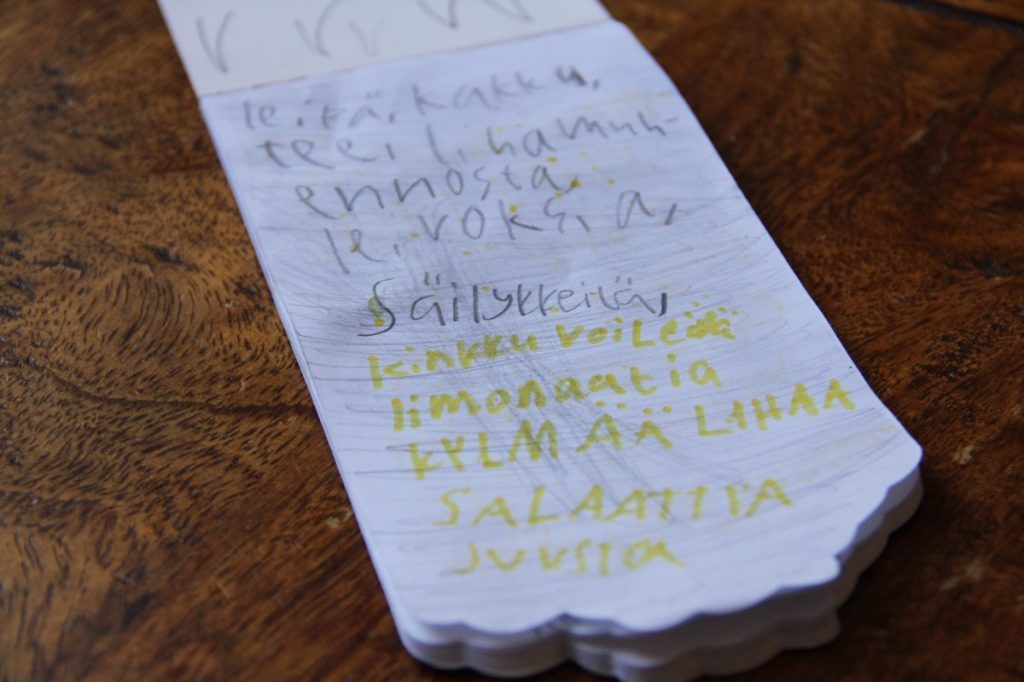 leitä, kakku,
teei lihamuh-
ennosta,
leivoksia,
Säilykkeitä,
kinkku voileitä
limonaatia
KYLMÄÄ LIHAA
SALAATTIA
JUUSTA